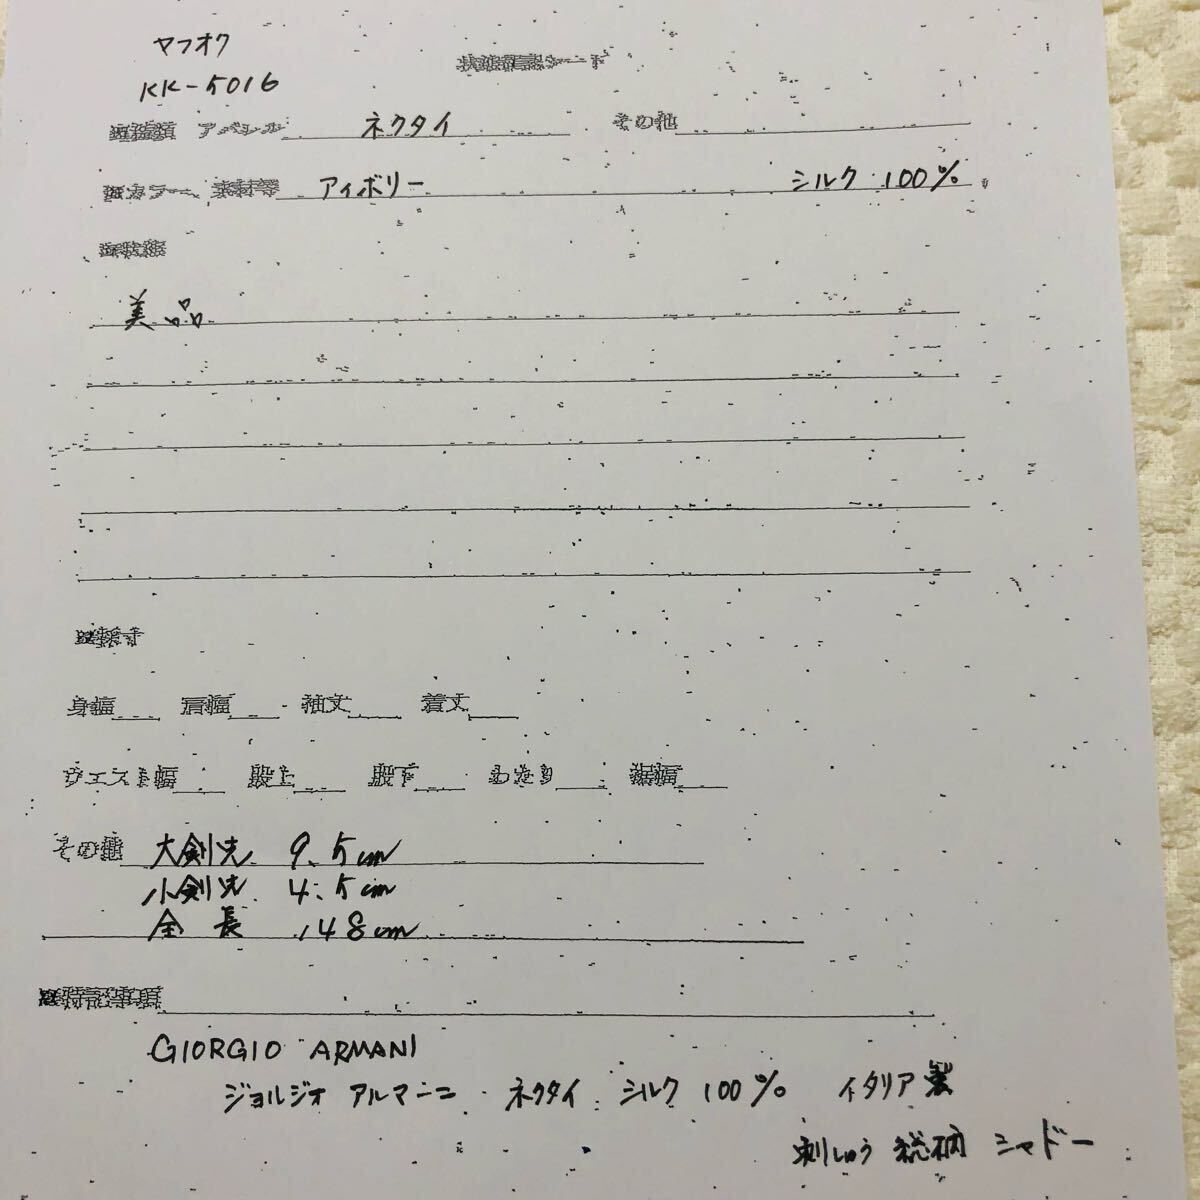 ヤフオク
KK-5016
状態確認シート
種類 アパレル ネクタイ その他
カラー、素材等 アイボリー シルク 100%
状態
美品
採寸
身幅 肩幅 袖丈 着丈
ウエスト幅 股上 股下 わたり 裾幅
その他 大剣先 9.5cm
小剣先 4.5cm
全長 148cm
特記事項
GIORGIO ARMANI
ジョルジオ アルマーニ ネクタイ シルク 100% イタリア製
刺しゅう 総柄 シャドー